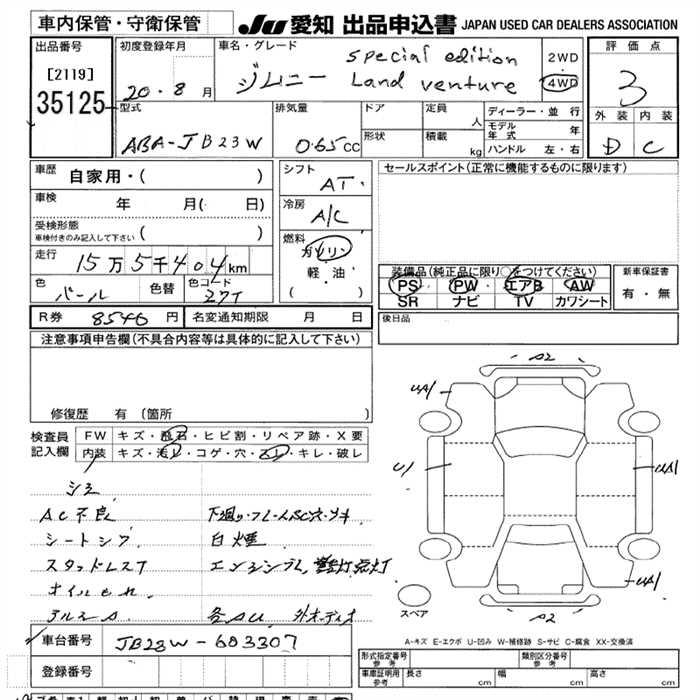 車内保管・守衛保管
JU 愛知 出品申込書 JAPAN USED CAR DEALERS ASSOCIATION
出品番号
[2119]
35125
初度登録年月
20・8月
車名・グレード
ジムニー
special edition
Land venture
2WD
4WD
評価点
3
外装 内装
D C
型式
ABA-JB23W
排気量
0.65CC
ドア
形状
定員 人
積載 kg
ディーラー・並行
モデル年式 年
ハンドル 左・右
車歴 自家用・( )
車検 年 月( 日)
受検形態
車検付きのみ記入して下さい ( )
走行 15万5千404km
色 パール 色替
色コード Z7T
シフト AT
冷房 A/C
燃料
ガソリン
軽油
( )
セールスポイント(正常に機能するものに限ります)
装備品(純正品に限り○をつけてください)
PS PW エアB AW
SR ナビ TV カワシート
新車保証書
有・無
R券 8540円 名変通知期限 月 日
後日品
注意事項申告欄(不具合内容等は具体的に記入して下さい)
修復歴 有(箇所
検査員
記入欄
FW キズ・飛石・ヒビ割・リペア跡・X要
内装 キズ・汚レ・コゲ・穴・スレ・キレ・破レ
シミ
AC不良
白煙
A2
UA1
U1
UA1
UA1
A2
スペア
A-キズ E-エクボ U-凹み W-補修跡 S-サビ C-腐食 XX-交換済
車台番号 JB23W-603307
登録番号
形式指定番号 参考
類別区分番号 参考
車庫証明用 参考 長さ cm 幅 cm 高さ cm